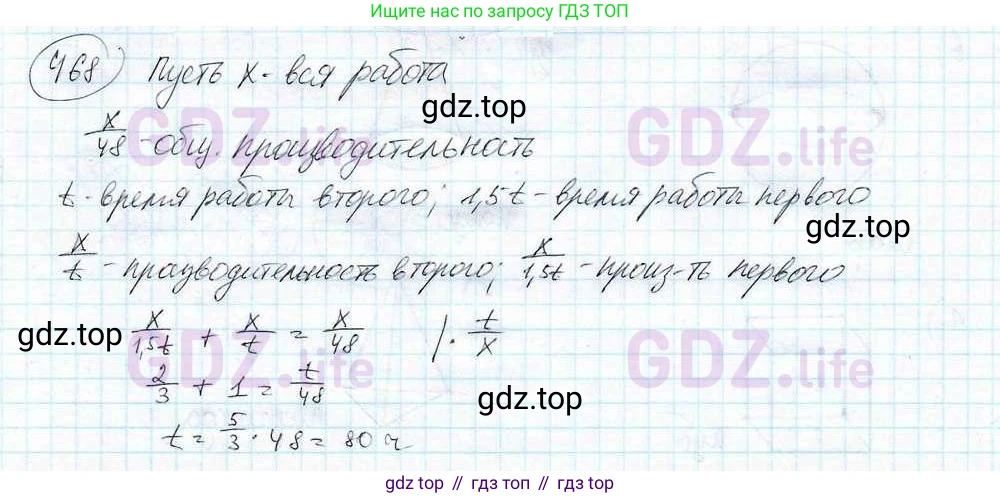 Ищите нас по запросу ГДЗ ТОП
468) Пусть x - вся работа
gdz.top
x/48 - общ. производительность
GDZ.life
t - время работы второго; 1,5t - время работы первого
gdz.top
x/t - производительность второго; x/1,5t - произ-ть первого
gdz.top
x/1,5t + x/t = x/48 | · t/x
GDZ.life
2/3 + 1 = t/48
gdz.top
t = 5/3 · 48 = 80 ч
gdz.top // гдз топ // gdz.top // гдз топ